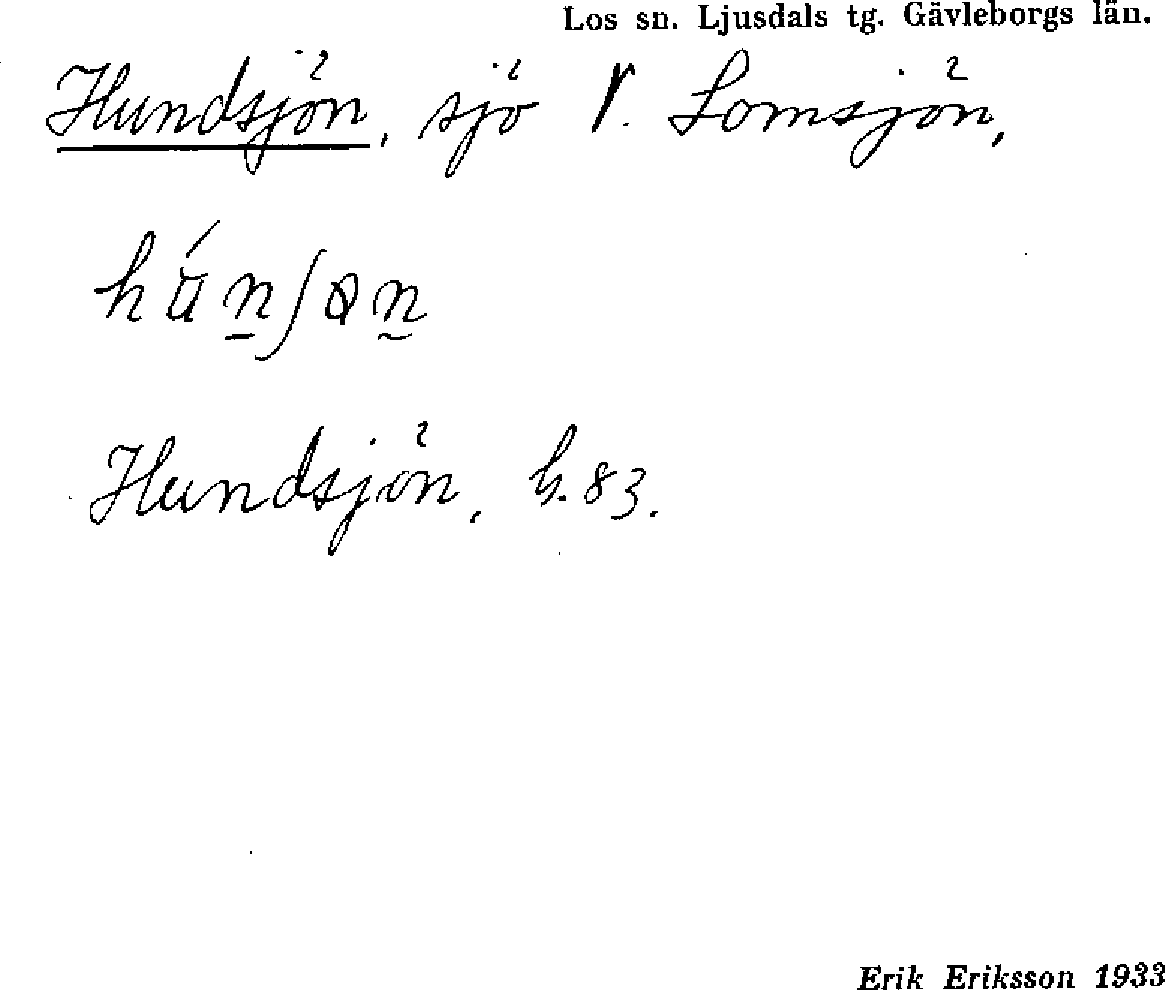 Los sn. Ljusdals tg. Gävleborgs län.
Hundsjön, sjö V. Lomsjön,
Hundsjön, h. 83.
Erik Eriksson 1933